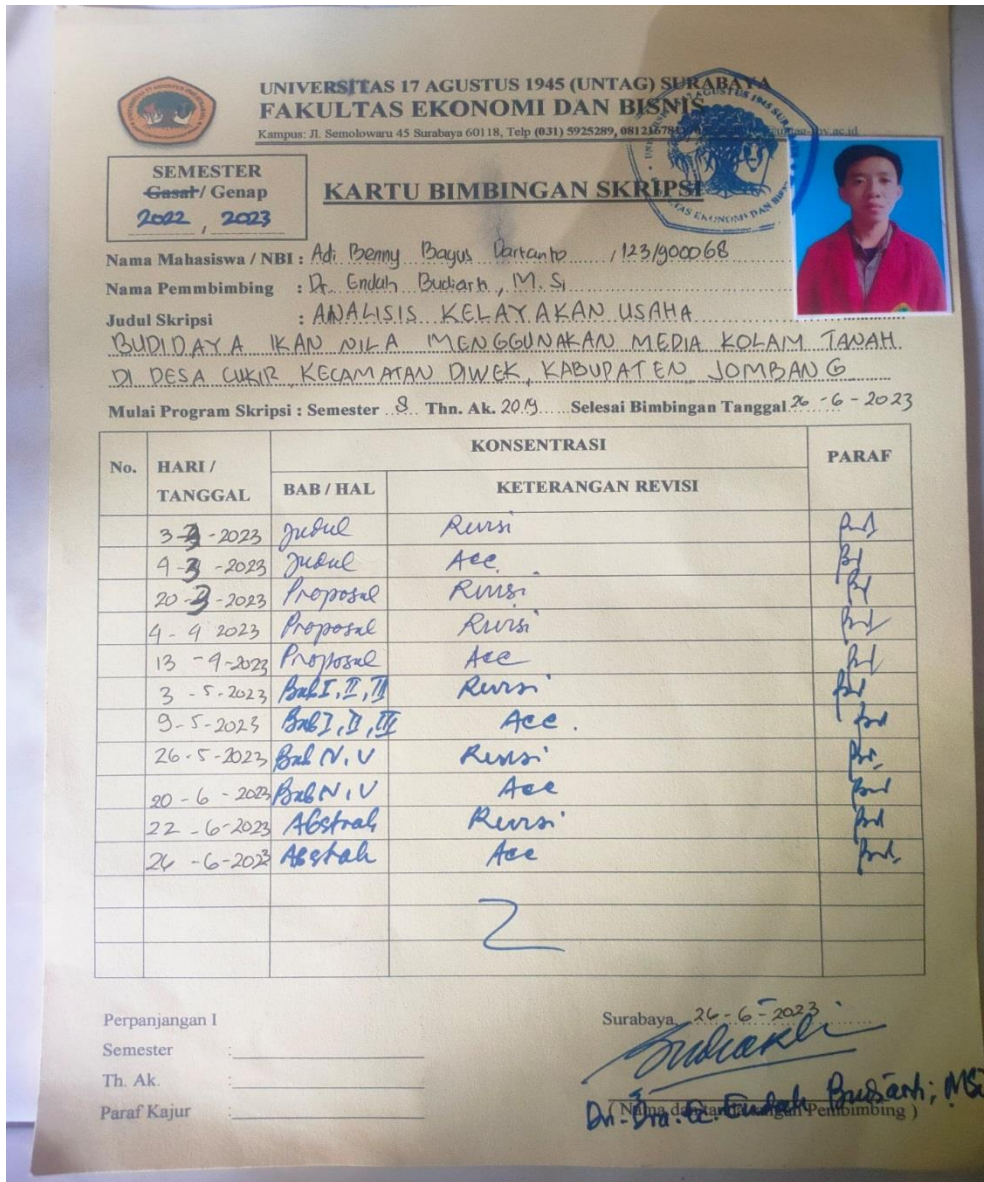 UNIVERSITAS 17 AGUSTUS 1945 (UNTAG) SURABAYA
FAKULTAS EKONOMI DAN BISNIS
Kampus: Jl. Semolowaru 45 Surabaya 60118, Telp (031) 5925289,
SEMESTER
Gasal / Genap
2022, 2023
KARTU BIMBINGAN SKRIPSI
Nama Mahasiswa / NBI : Adi Benny Bagus Dartanto / 1231900068
Nama Pemmbimbing : Dr. Endah Budiarti, M. Si
Judul Skripsi : ANALISIS KELAYAKAN USAHA
BUDIDAYA IKAN NILA MENGGUNAKAN MEDIA KOLAM TANAH
DI DESA CUKIR, KECAMATAN DIWEK, KABUPATEN JOMBANG
Mulai Program Skripsi : Semester 8 Thn. Ak. 2019 Selesai Bimbingan Tanggal 26 - 6 - 2023
No. HARI / TANGGAL KONSENTRASI PARAF
BAB / HAL KETERANGAN REVISI
3-3-2023 Judul Revisi
9-3-2023 Judul Acc
20-3-2023 Proposal Revisi
4-4 2023 Proposal Revisi
13-4-2023 Proposal Acc
3-5-2023 Bab I, II, III Revisi
9-5-2023 Bab I, II, III Acc.
26-5-2023 Bab IV, V Revisi
20-6-2023 Bab IV, V Acc
22-6-2023 Abstrak Revisi
26-6-2023 Abstrak Acc
Perpanjangan I
Semester :
Th. Ak. :
Paraf Kajur :
Surabaya, 26-6-2023
Dr. Dra. Ec. Endah Budiarti, MSi
( Nama dan tandatangan Pembimbing )